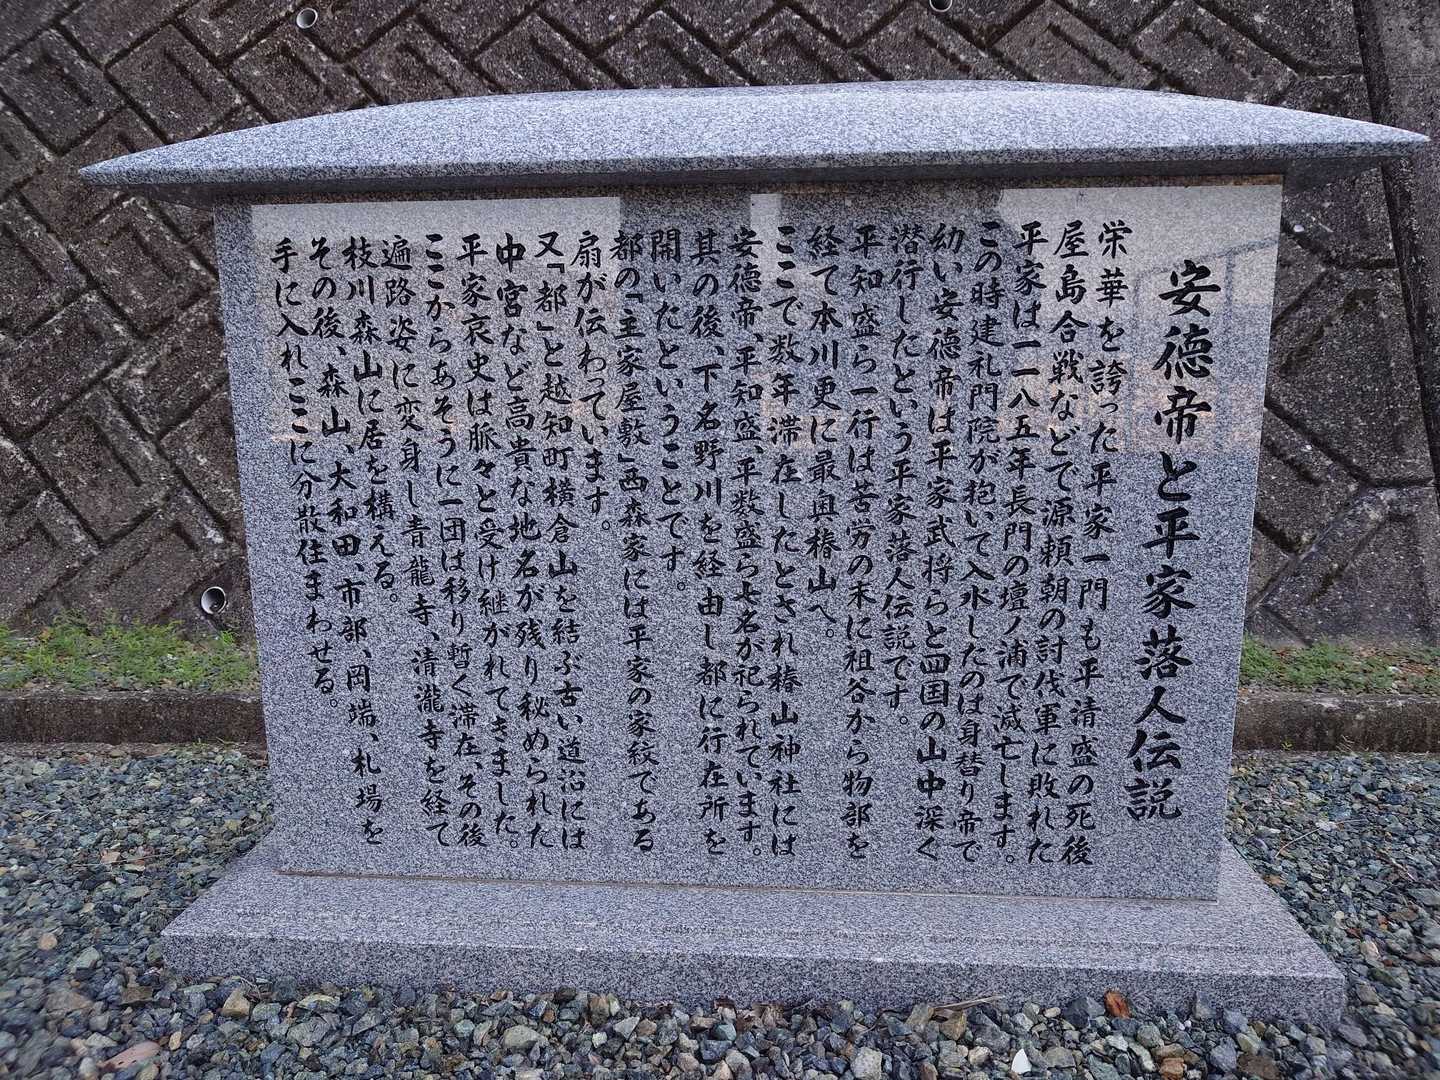 安徳帝と平家落人伝説
栄華を誇った平家一門も平清盛の死後
屋島合戦などで源頼朝の討伐軍に敗れた
平家は一一八五年長門の壇ノ浦で滅亡します。
この時建礼門院が抱いて入水したのは身替り帝で
幼い安徳帝は平家武将らと四国の山中深く
潜行したという平家落人伝説です。
平知盛ら一行は苦労の末に祖谷から物部を
経て本川更に最奥椿山へ。
ここで数年滞在したとされ椿山神社には
安徳帝、平知盛、平教盛ら七名が祀られています。
其の後、下名野川を経由し都に行在所を
開いたということです。
都の「主家屋敷」西森家には平家の家紋である
扇が伝わっています。
又「都」と越知町横倉山を結ぶ古い道沿には
中宮など高貴な地名が残り秘められた
平家哀史は脈々と受け継がれてきました。
ここからあそうに一団は移り暫く滞在、その後
遍路姿に変身し青龍寺、清瀧寺を経て
枝川森山に居を構える。
その後、森山、大和田、市部、岡端、札場を
手に入れここに分散住まわせる。